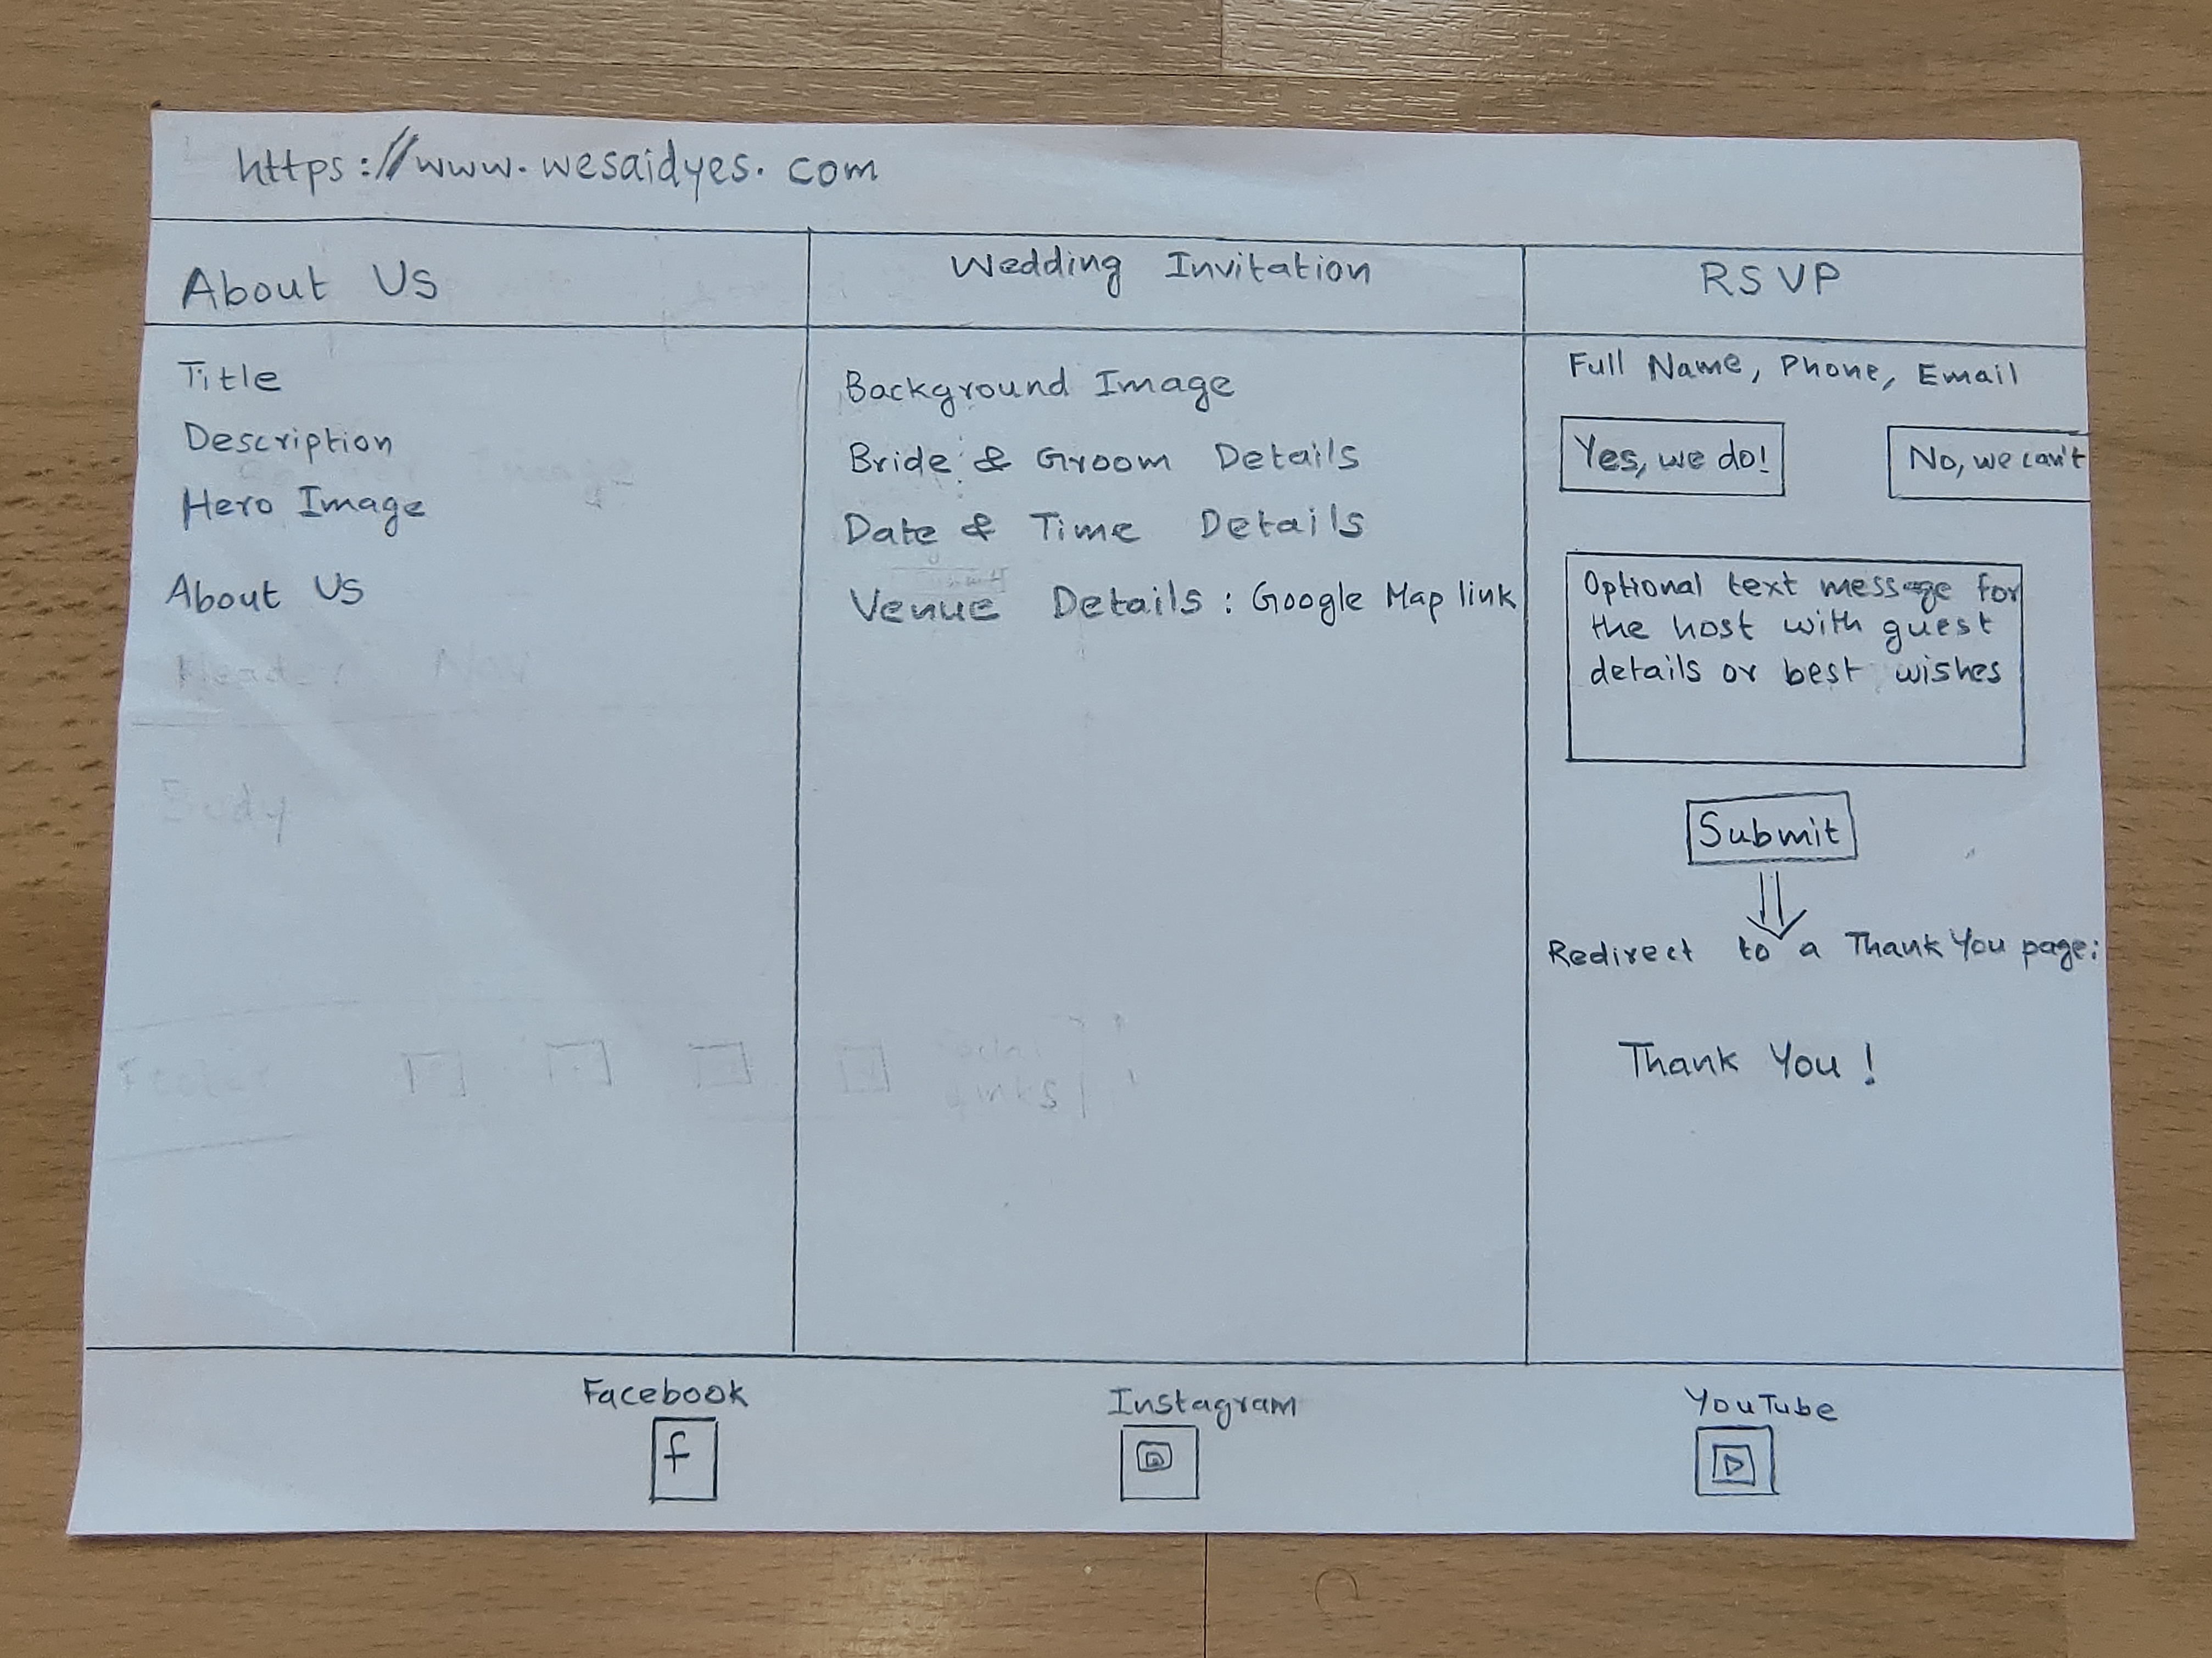 https://www.wesaidyes.com
About Us
Title
Description
Hero Image
About Us
Wedding Invitation
Background Image
Bride & Groom Details
Date & Time Details
Venue Details : Google Map link
RSVP
Full Name, Phone, Email
Yes, we do!
No, we can't
Optional text message for
the host with guest
details or best wishes
Submit
Redirect to a Thank You page:
Thank You !
Facebook
f
Instagram
YouTube
Body